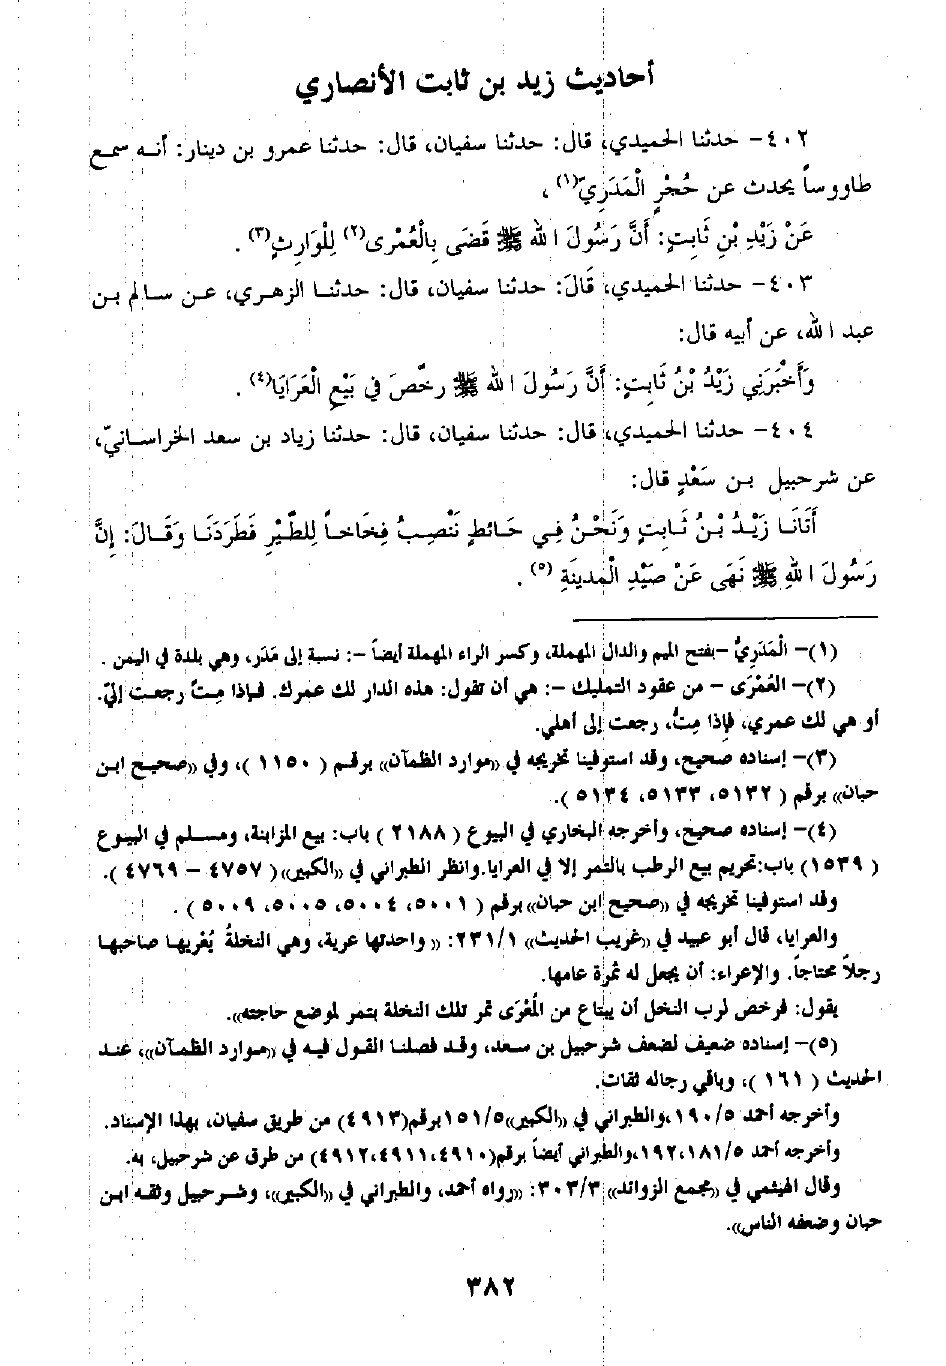 أحاديث زيد بن ثابت الأنصاري
٤٠٢- حدثنا الحميدي، قال: حدثنا سفيان، قال: حدثنا عمرو بن دينار: أنه سمع
طاووساً يحدث عن حُجْرٍ الْمَدَرِيّ(١) ،
عَنْ زَيْدِ بْنِ ثَابِتٍ: أَنَّ رَسُولَ الله ﷺ قَضَى بِالْعُمْرى(٢) لِلْوَارِثِ(٣) .
٤٠٣- حدثنا الحميدي، قَالَ: حدثنا سفيان، قال: حدثنا الزهري، عن سالم بن
عبد الله، عن أبيه قال:
وَأَخْبَرَنِي زَيْدُ بْنُ ثَابِتٍ: أَنَّ رَسُولَ الله ﷺ رخّصَ في بَيْعِ الْعَرَايَا(٤) .
٤٠٤- حدثنا الحميدي، قال: حدثنا سفيان، قال: حدثنا زياد بن سعد الخراسانيّ،
عن شرحبيل بن سَعْدٍ قال:
أَتَانَا زَيْدُ بْنُ ثَابِتٍ وَنَحْنُ فِي حَائطٍ نَنْصِبُ فِخَاخاً لِلطَّيْرِ فَطَرَدَنَا وَقَالَ: إِنَّ
رَسُولَ اللهِ ﷺ نَهَى عَنْ صَيْدِ الْمدينَةِ (٥) .
(١)- الْمَدَرِيُّ -بفتح الميم والدال المهملة، وكسر الراء المهملة أيضاً -: نسبة إلى مَدَر، وهي بلدة في اليمن .
(٢)- العُمْرَى - من عقود التمليك -: هي أن تقول: هذه الدار لك عمرك. فإذا مِتَّ رجعت إليّ.
أو هي لك عمري، فإذا مِتُّ، رجعت إلى أهلي.
(٣)- إسناده صحيح، وقد استوفينا تخريجه في «موارد الظمآن» برقم ( ١١٥٠ )، وفي «صحيح ابن
حبان» برقم ( ٥١٣٢، ٥١٣٣، ٥١٣٤ ).
(٤)- إسناده صحيح، وأخرجه البخاري في البيوع ( ٢١٨٨ ) باب: بيع المزابنة، ومسلم في البيوع
( ١٥٣٩) باب:تحريم بيع الرطب بالتمر إلا في العرايا.وانظر الطبراني في «الكبير»( ٤٧٥٧ – ٤٧٦٩ ).
وقد استوفينا تخريجه في «صحيح ابن حبان» برقم ( ٥٠٠١، ٥٠٠٤، ٥٠٠٥، ٥٠٠٩ ) .
والعرايا، قال أبو عبيد في «غريب الحديث» ٢٣١/١: « واحدتها عرية، وهي النخلةُ يُعْرِيها صاحبها
رجلاً محتاجاً. والإعراء: أن يجعل له ثمرة عامها.
يقول: فرخص لرب النخل أن يبتاع من المُعْرَى ثمر تلك النخلة بتمر لموضع حاجته».
(٥)- إسناده ضعيف لضعف شرحبيل بن سعد، وقد فصلنا القول فيه في «موارد الظمآن»، عند
الحديث ( ١٦١ )، وباقي رجاله ثقات.
وأخرجه أحمد ١٩٠/٥،والطبراني في «الكبير»١٥١/٥برقم(٤٩١٣) من طريق سفيان، بهذا الإسناد.
وأخرجه أحمد ١٨١/٥، ١٩٢،والطبراني أيضاً برقم(٤٩١٠،٤٩١١،٤٩١٢) من طرق عن شرحبيل، به.
وقال الهيثمي في «مجمع الزوائد» ٣٠٣/٣: «رواه أحمد، والطبراني في «الكبير»، وشرحبيل وثقه ابن
حبان وضعفه الناس».
٣٨٢